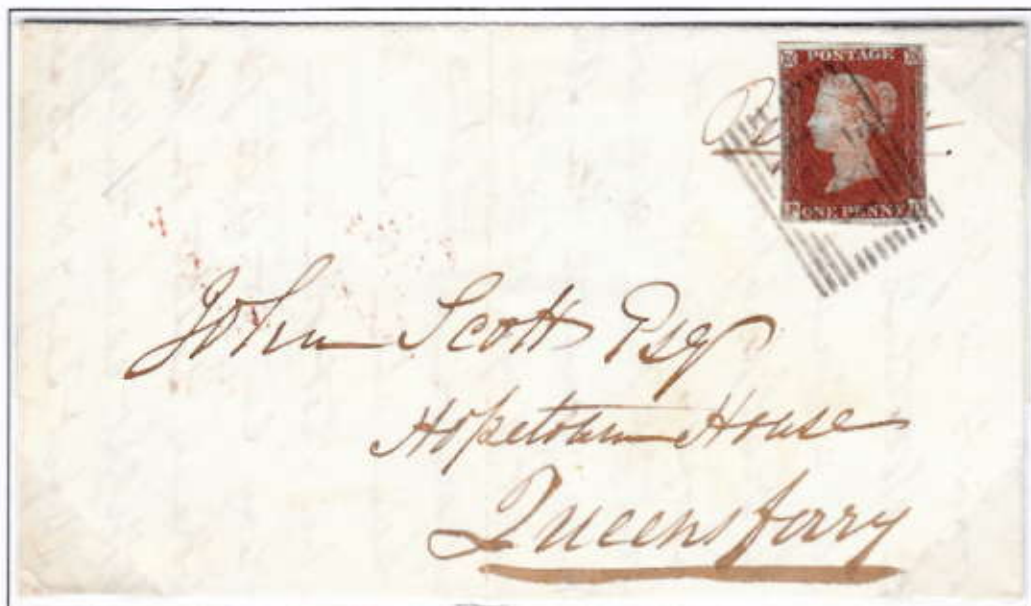 POSTAGE
ONE PENNY
John Scott Esq
Hopetoun House
Queensferry